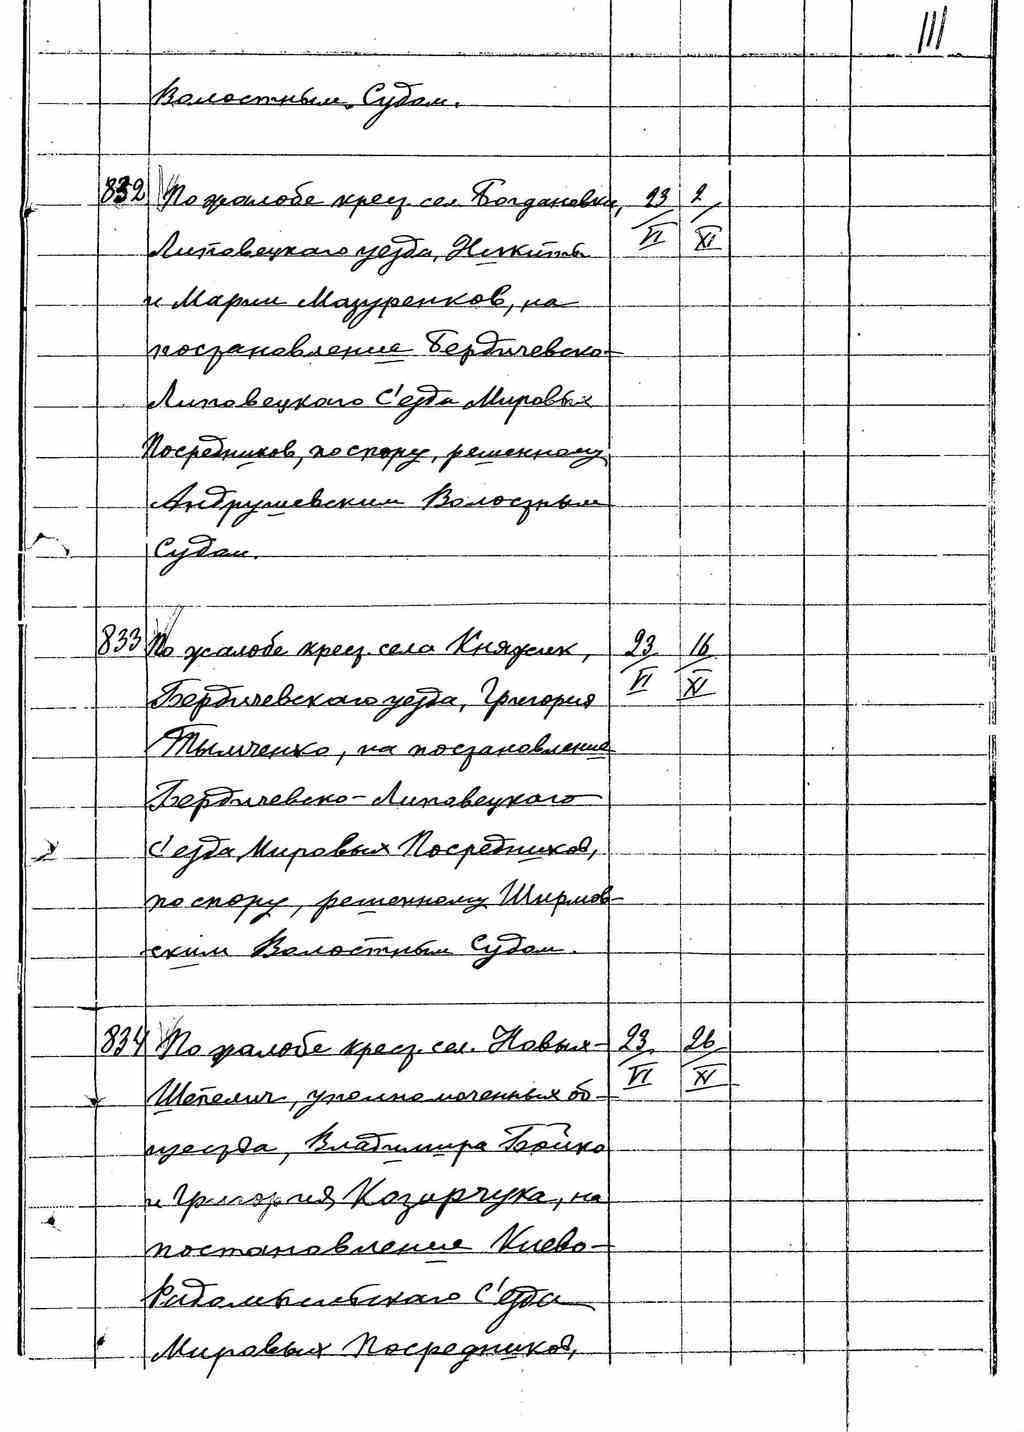 111
Волостным Судом.
832 По жалобе крест. сел. Богдановки, 23/VI 2/XI
Липовецкаго уезда, Никиты
и Марии Мазуренков, на
постановление Бердичевско-
Липовецкаго С'езда Мировых
Посредников, по спору, решенному
Андрушевским Волостным
Судом.
833 По жалобе крест. села Княжик, 23/VI 16/XI
Бердичевскаго уезда, Григория
Тымченко, на постановление
Бердичевско-Липовецкаго
С'езда Мировых Посредников,
по спору, решенному Ширмов-
ским Волостным Судом.
834 По жалобе крест. сел. Новых- 23/VI 26/XI
Шепелич, уполномоченных об-
щества, Владимира Бойко
и Григория Козирчука, на
постановление Киево-
Радомысльскаго С'езда
Мировых Посредников,